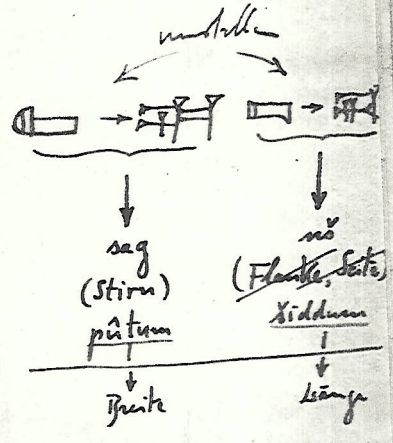 sag
(Stirn)
pûtum
Breite
uš
(Flanke, Seite)
šiddum
Länge